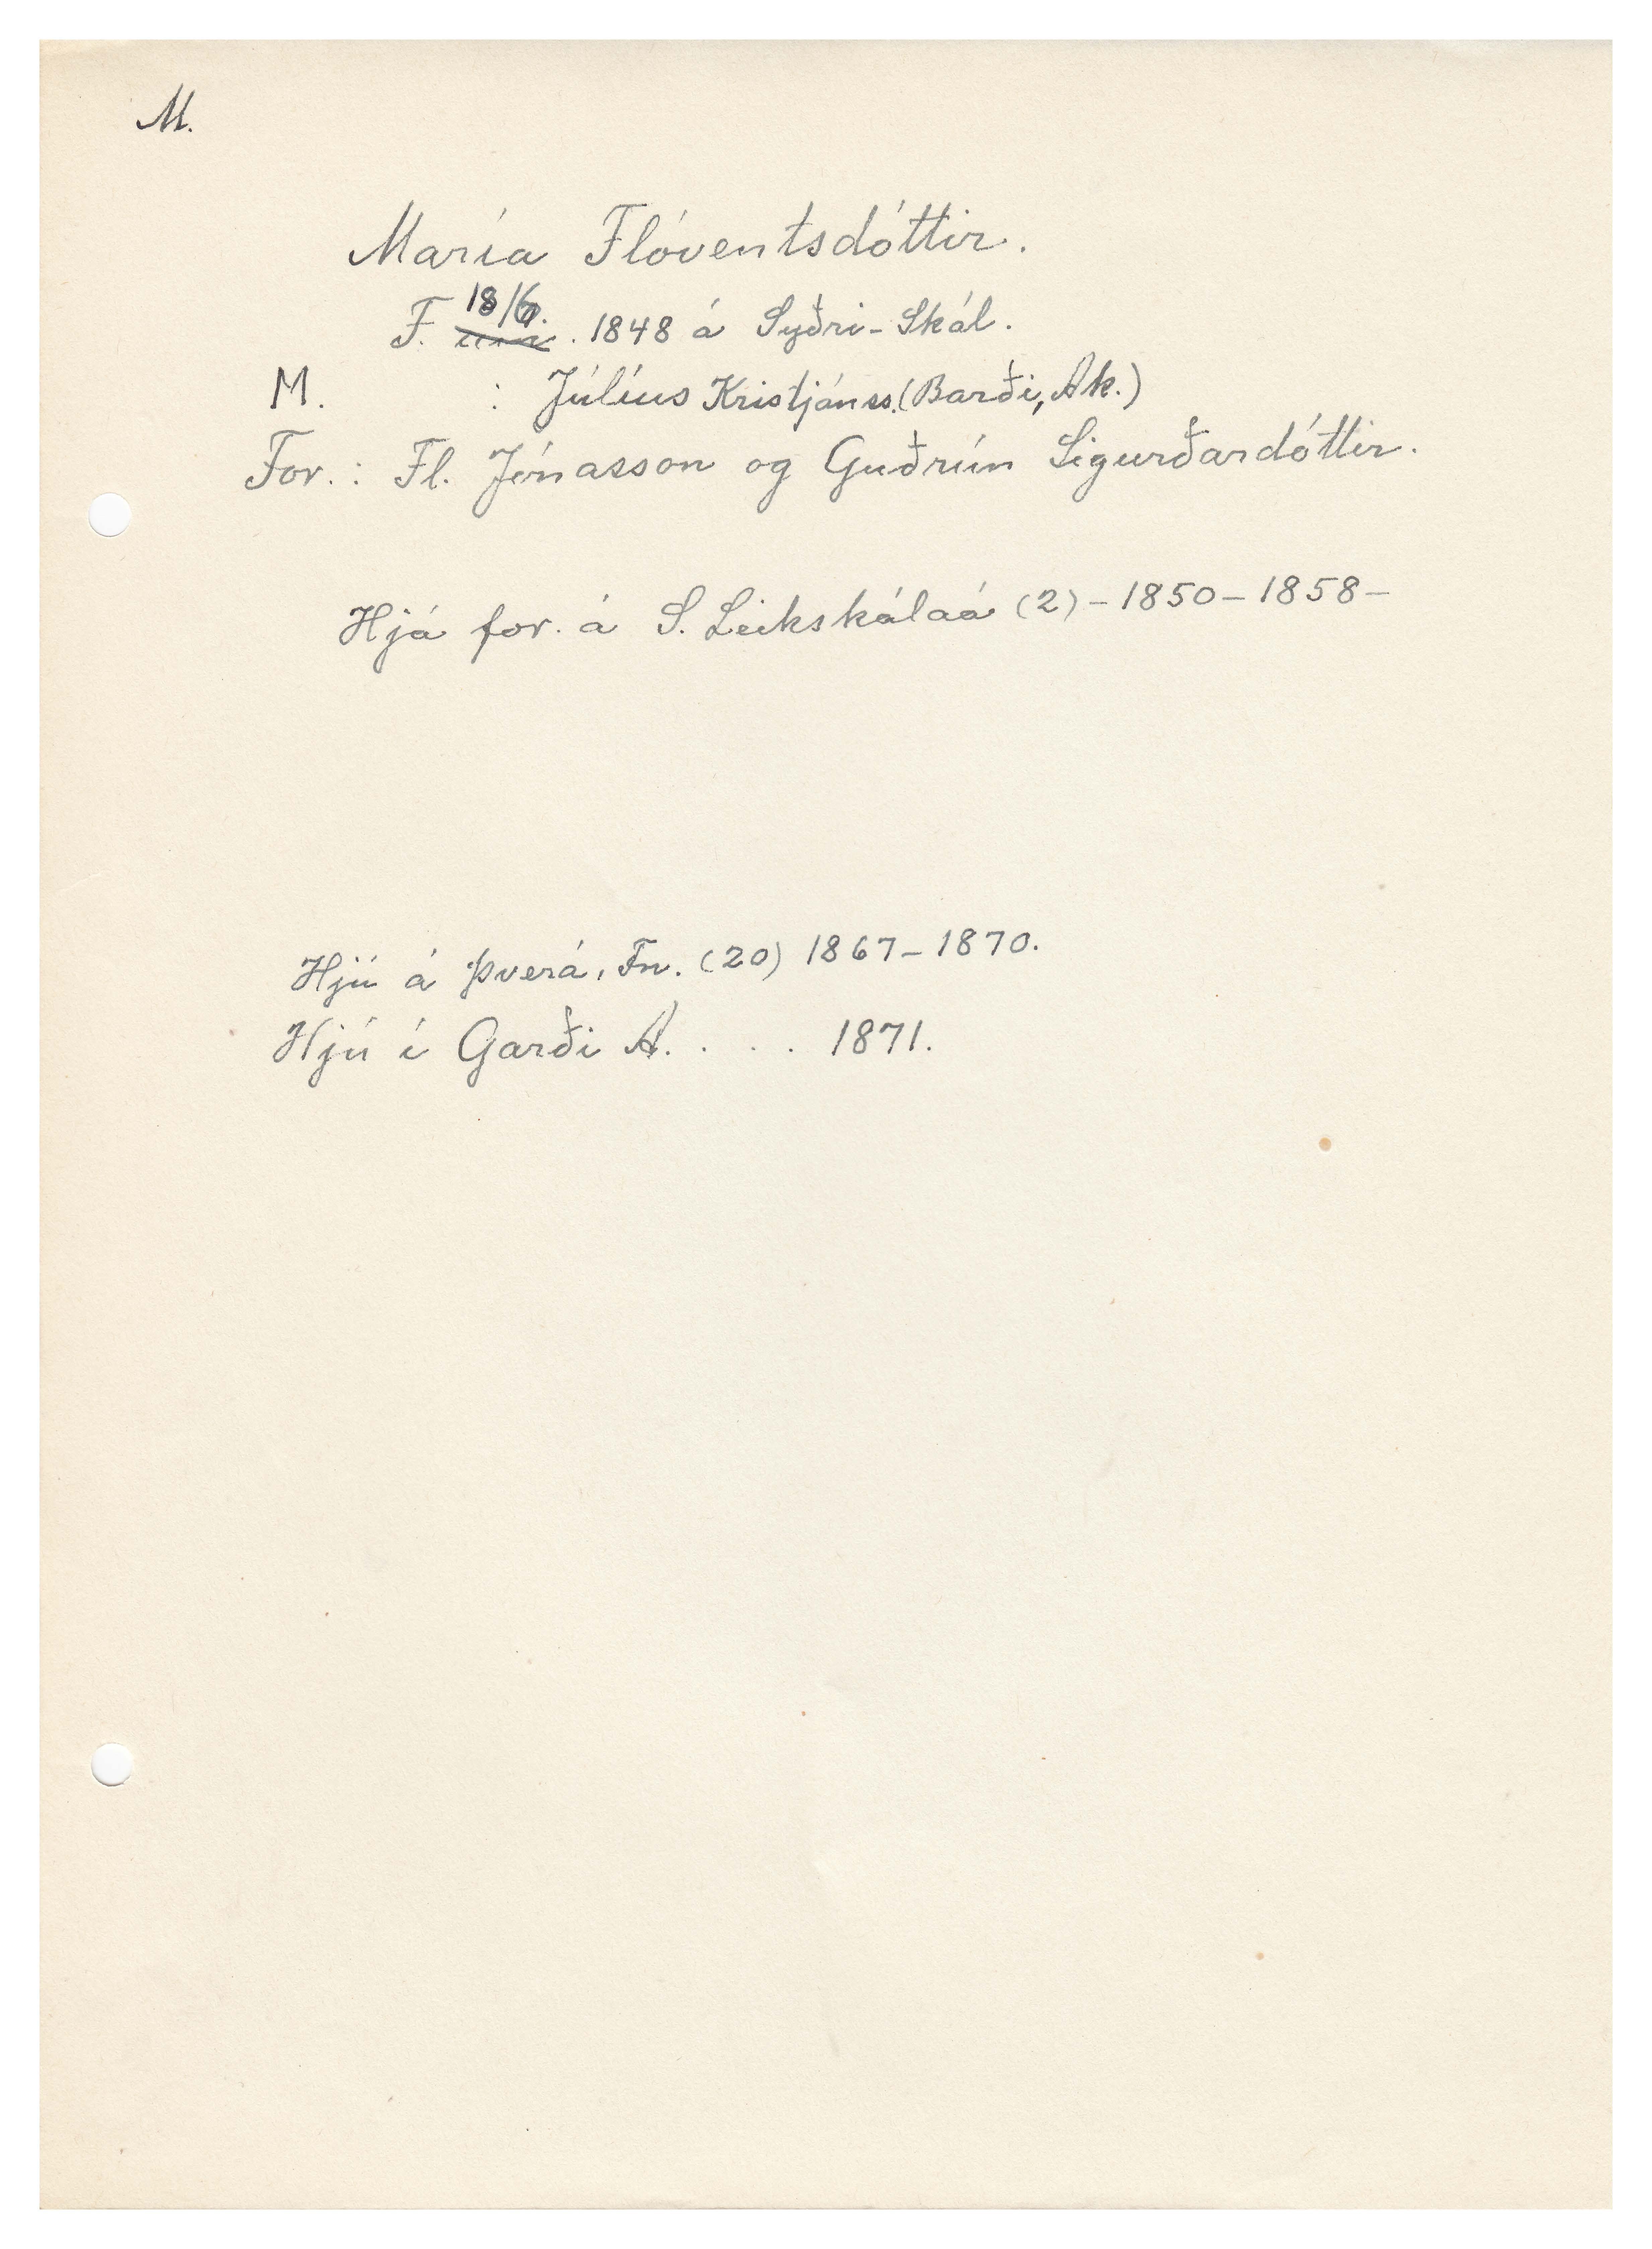 M.
María Flóventsdóttir.
F. 18/6. . 1848 á Syðri-Skál.
M. : Júlíus Kristjánss. (Barði, Ak.)
For. : Fl. Jónasson og Guðrún Sigurðardóttir.
Hjá for. á S. Leikskálaá (2) - 1850 - 1858 -
Hjú á Þverá, Fn. (20) 1867 - 1870.
Hjú í Garði A. . . . 1871.